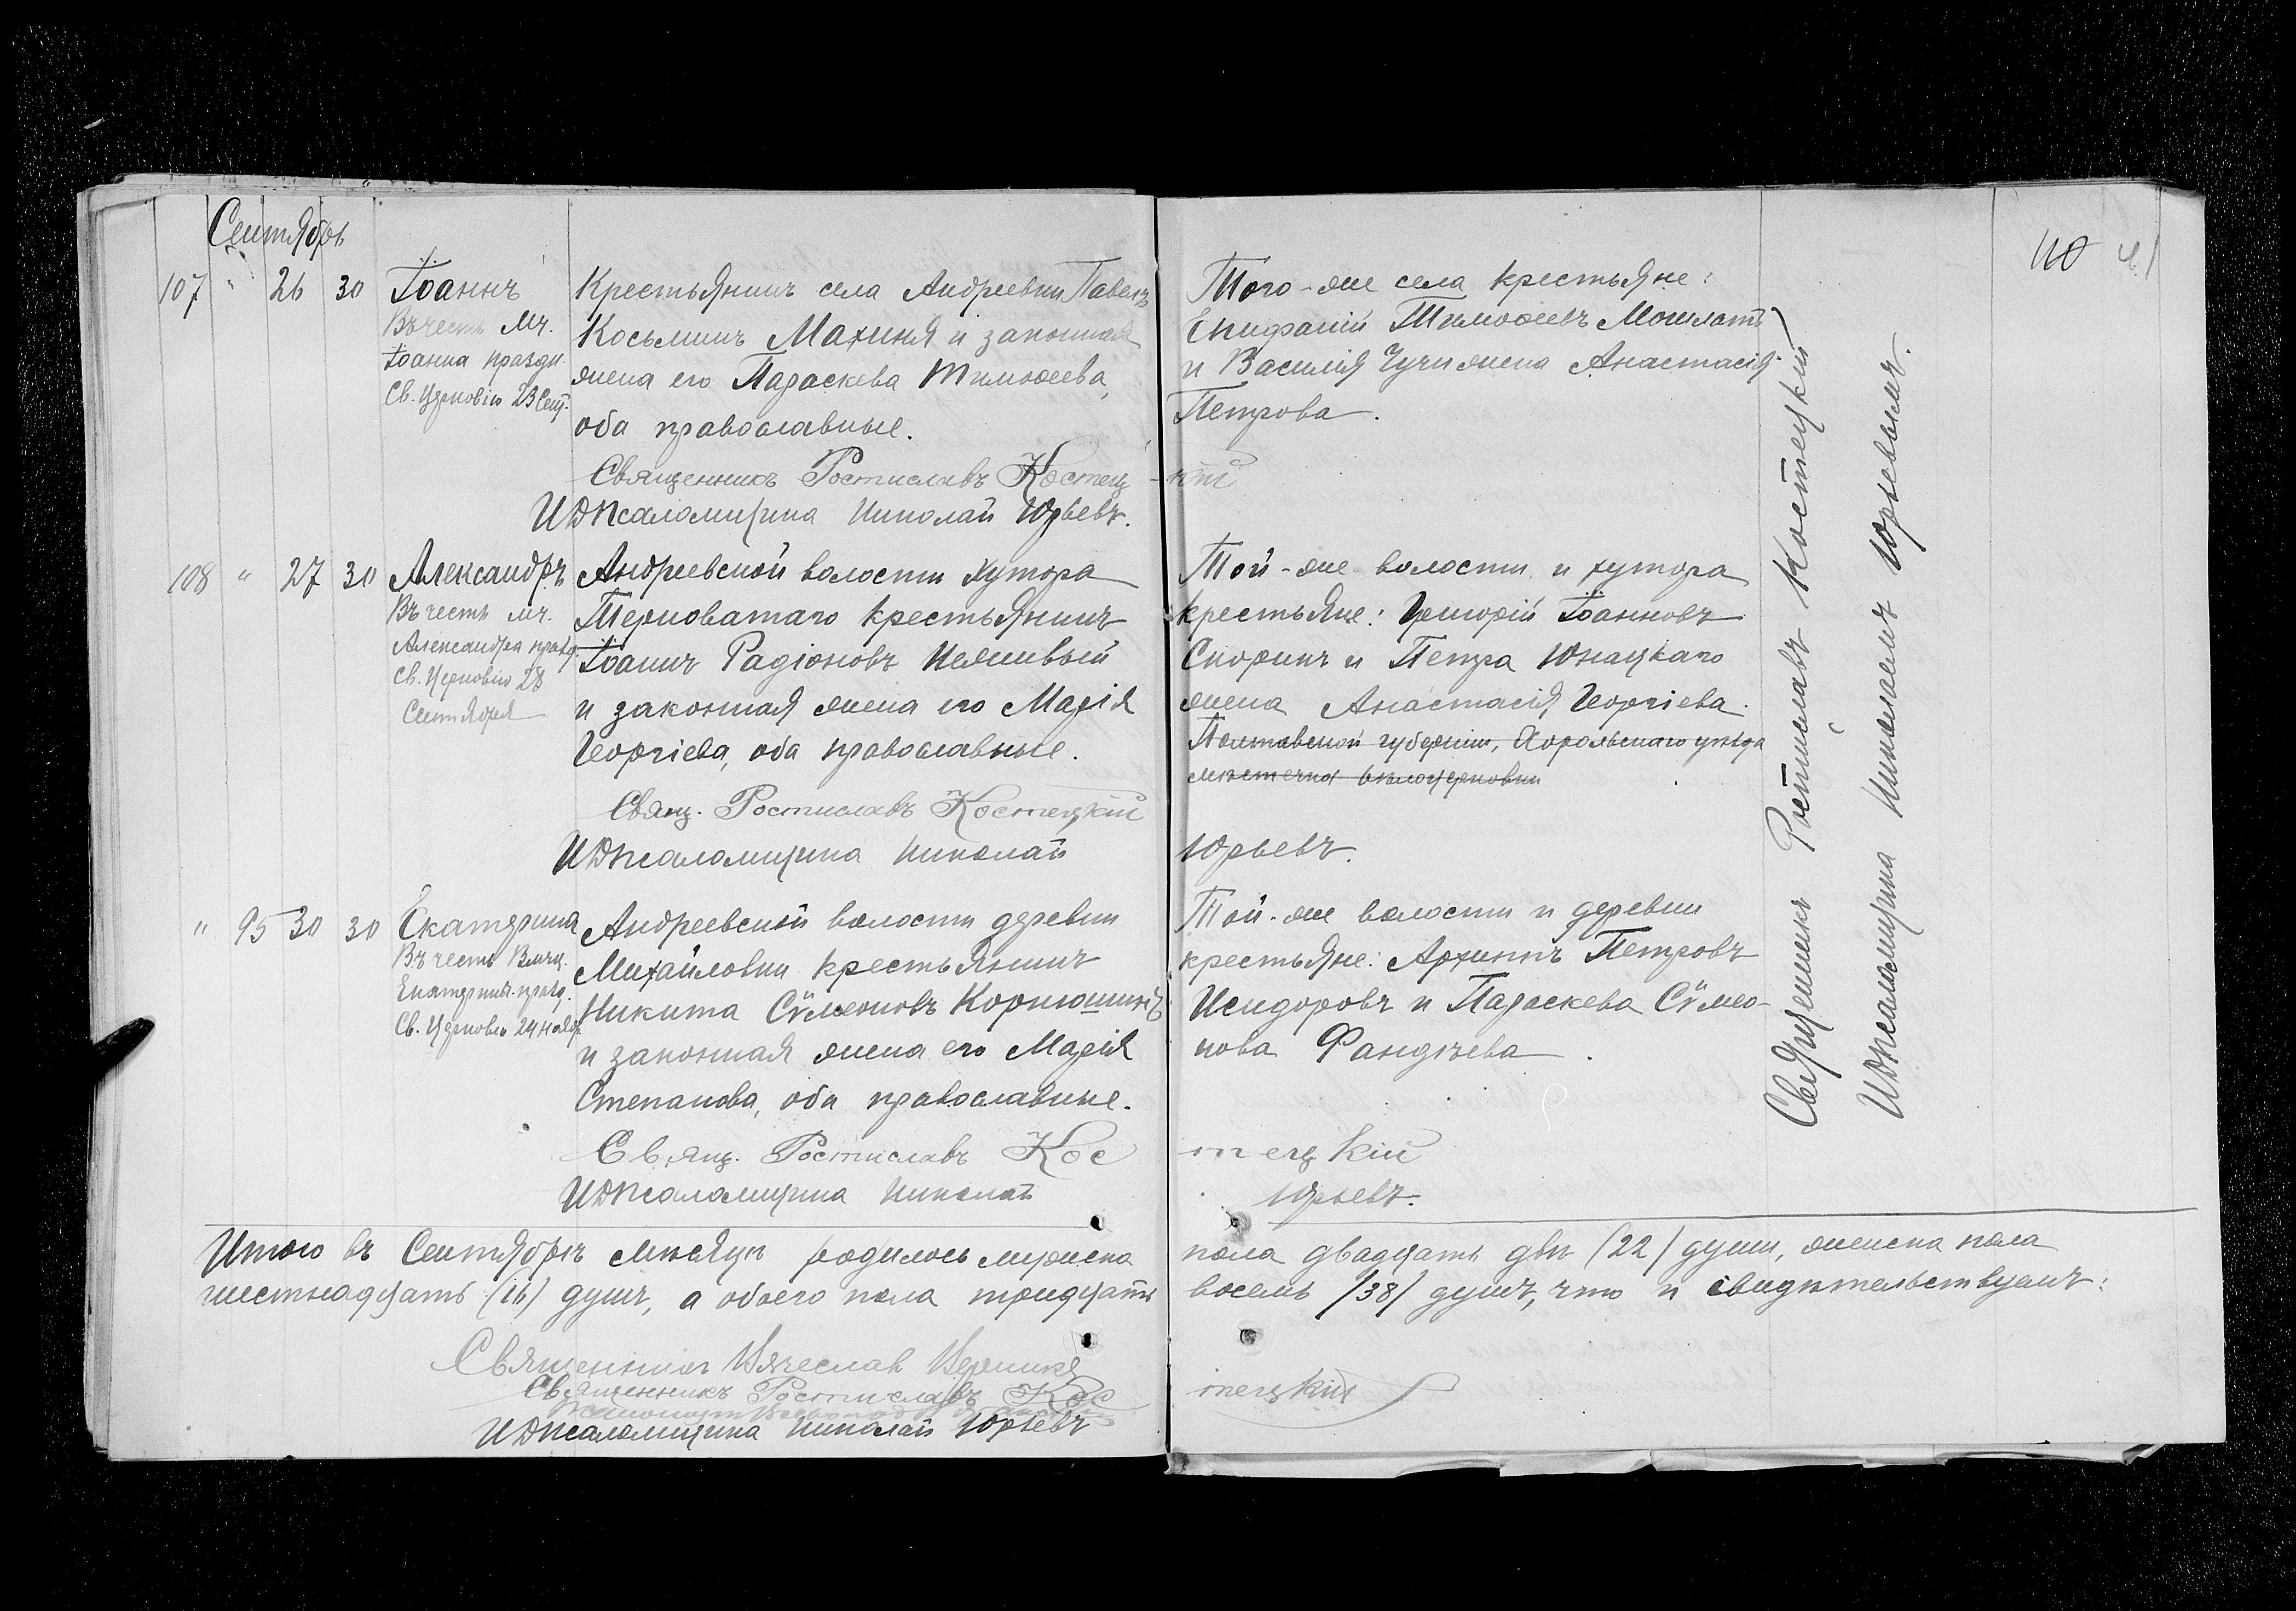 Сентябрь
110
107 " 26 30 Іоаннъ
Въ честь мч.
Іоанна праздн.
Св. Церковію 23 Сент.
Крестьянинъ села Андреевки Павелъ
Косьминъ Махиня и законная
жена его Параскева Тимоѳеева,
оба православные.
Того-же села крестьяне:
Епифаній Тимоѳеевъ
и Василія жена Анастасія
Петрова.
Священникъ Ростиславъ Костец-кій
И Д Псаломщика Николай Юрьевъ.
108 " 27 30 Александръ
Въ честь мч.
Александра празд.
Св. Церковію 28
Сентября
Андреевской волости хутора
Терноватаго крестьянинъ
Іоаннъ Радіоновъ
и законная жена его Марія
Георгіева, оба православные.
Той-же волости и хутора
крестьяне: Григорій Іоанновъ
Скорикъ и Петра Юнацкаго
жена Анастасія Георгіева.
Полтавской губерніи, Хорольскаго уѣзда
мѣстечка Бѣлоцерковки
Свящ. Ростиславъ Костецкій
И Д Псаломщика Николай Юрьевъ.
" 95 30 30 Екатерина
Въ честь Вмчц.
Екатерины празд.
Св. Церковью 24 Нояб.
Андреевской волости деревни
Михайловки крестьянинъ
Никита Сѵмеоновъ Корнюшинъ
и законная жена его Марія
Степанова, оба православные.
Той-же волости и деревни
крестьяне: Архиппъ Петровъ
Исидоровъ и Параскева Сѵмео-
нова Фандѣева.
Свящ. Ростиславъ Костецкій
И Д Псаломщика Николай Юрьевъ.
Священникъ Ростиславъ Костецкій
И Д Псаломщика Николай Юрьевъ.
Итого въ Сентябрѣ мѣсяцѣ родилось мужска пола двадцать двѣ /22/ души, женска пола
шестнадцать (16) душъ, а обоего пола тридцать восемь /38/ душъ, что и свидѣтельствуемъ:
Священникъ Вячеслав
Священникъ Ростиславъ Костецкій
И Д Псаломщика Николай Юрьевъ